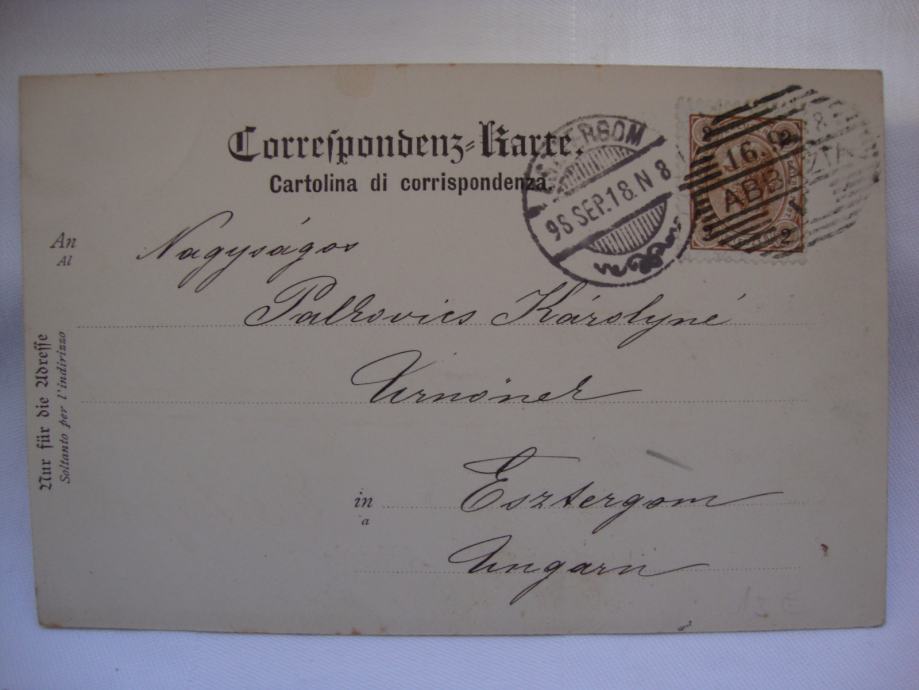 Correspondenz-Karte.
Cartolina di corrispondenza.
ESZTERGOM
98 SEP. 18. N 8
16. 9
ABBAZIA
2 2
2
An
Al
Nagyságos
Palkovics Károlyné
Urnőnek
in
a
Esztergom
Ungarn
Nur für die Adresse
Soltanto per l'indirizzo